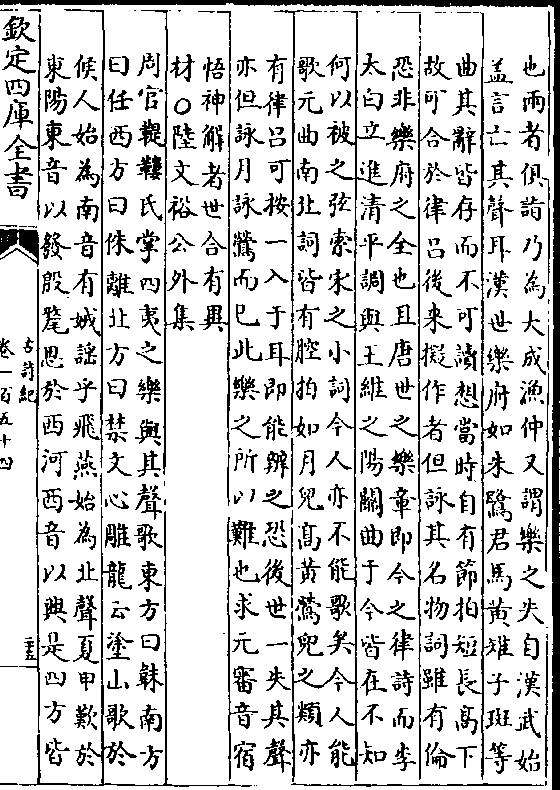 也兩者俱詣乃為大成漁仲又謂樂之失自漢武始
葢言亡其聲耳漢世樂府如朱鷺君馬黄雉子斑等
曲其辭皆存而不可讀想當時自有節拍短長髙下
故可合於律吕後来擬作者但詠其名物詞雖有倫
恐非樂府之全也且唐世之樂章即今之律詩而李
太白立進清平調與王維之陽關曲于今皆在不知
何以被之弦索宋之小詞今人亦不能歌矣今人能
歌元曲南北詞皆有腔拍如月兒髙黄鶯兒之類亦
有律吕可按一入于耳即能辨之恐後世一失其聲
亦但詠月詠鶯而已此樂之所以難也求元審音宿
悟神解者世合有異
材○陸文裕公外集
周官鞮鞻氏掌四夷之樂與其聲歌東方曰韎南方
曰任西方曰侏離北方曰禁文心雕龍云塗山歌於
候人始為南音有娀謡乎飛燕始為北聲夏甲歎於
東陽東音以發殷氂思於西河西音以興是四方皆
欽定四庫全書
古詩紀
卷一百五十四